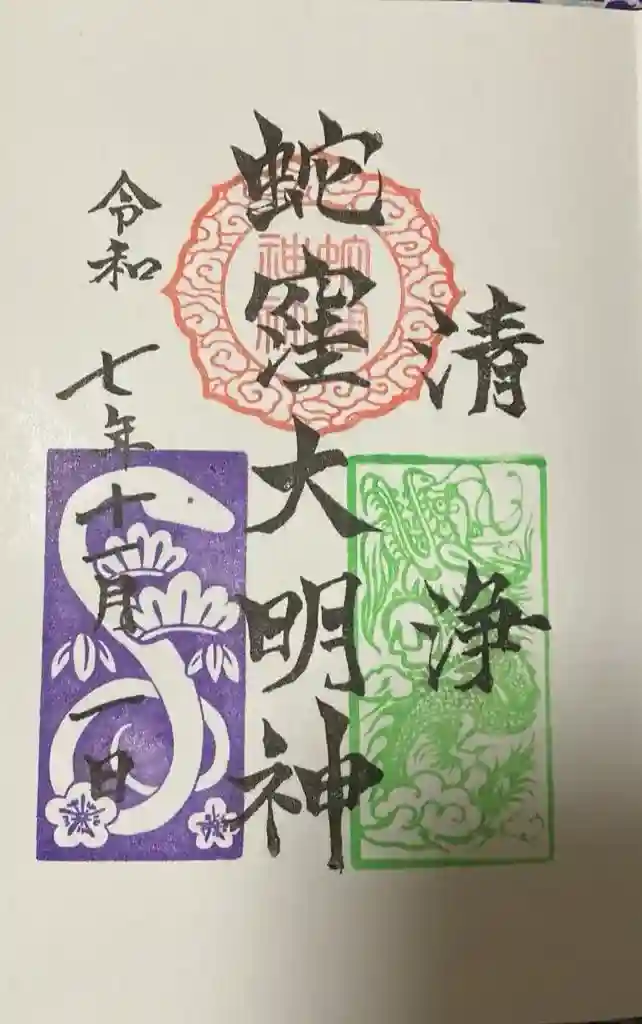 清浄
蛇窪大明神
令和七年十一月一日
蛇窪神社